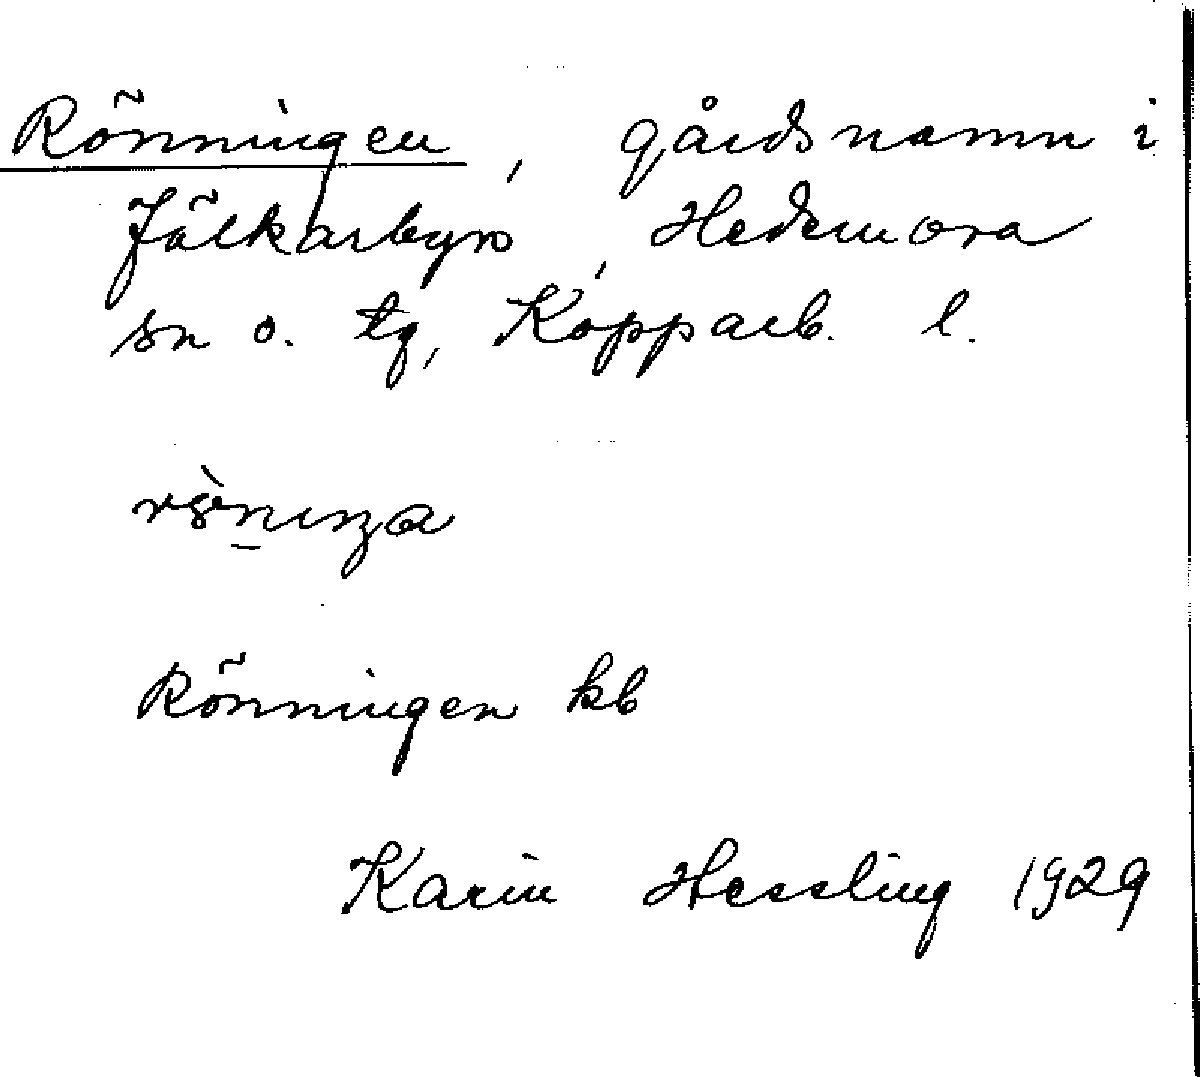 Rönningen, gårdsnamn i
Jälkarbyn, Hedemora
sn o. tg, Kopparb. l.
Rönningen kb
Karin Hessling 1929